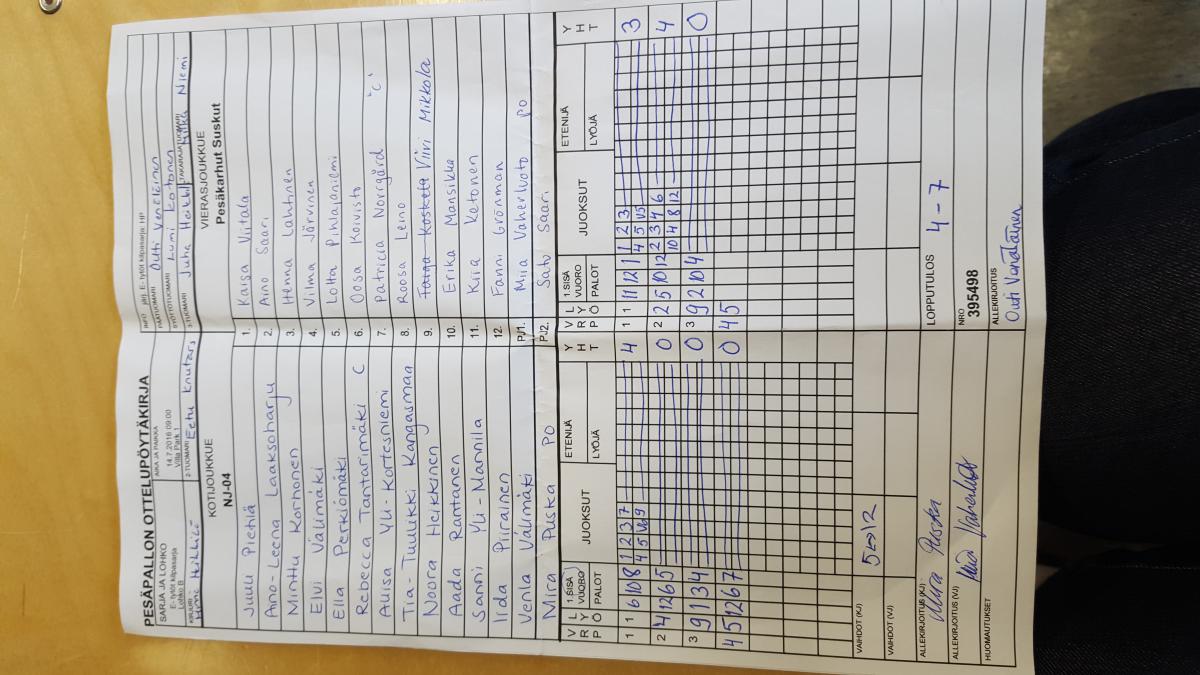 PESÄPALLON OTTELUPÖYTÄKIRJA
SARJA JA LOHKO
E-tytöt kilpasarja
Lohko B
AIKA JA PAIKKA
14.7.2016 09:00
Villa Park 1
INFO
E-tytöt kilpasarja: HP
PÄÄTUOMARI Outi Venäläinen
SYÖTTÖTUOMARI Lumi Kotonen
TAKARAJATUOMARI
KIRJURI
2-TUOMARI Eetu Knutars
3-TUOMARI Juha Heikkilä Niemi
KOTIJOUKKUE
NJ-04
VIERASJOUKKUE
Pesäkarhut Suskut
Juuli Pietilä 1. Kaisa Viitala
Aino-Leena Laaksoharju 2. Aino Saari
Minttu Korhonen 3. Henna Lahtinen
Elvi Välimäki 4. Vilma Järvinen
Ella Perkiömäki 5. Lotta Pihlajaniemi
Rebecca Tantarimäki C 6. Oosa Koivisto
Auisa Yli-Kortesniemi 7. Patricia Norrgård "C"
Tia-Tuulikki Kangasmaa 8. Roosa Leino
Noora Heikkinen 9. Taiga Koskela Viivi Mikkola
Aada Rantanen 10. Erika Mansikka
Sanni Yli-Mannila 11. Kiia Ketonen
Iida Piirainen 12. Fanni Grönman
Venla Välimäki PJ1. Miia Vaherluoto PO
Mira Puska PO PJ2. Satu Saari
V L
R Y
P Ö
1.SISÄ
VUORO
PALOT
JUOKSUT
ETENIJÄ
LYÖJÄ
Y
H
T
V L
R Y
P Ö
1.SISÄ
VUORO
PALOT
JUOKSUT
ETENIJÄ
LYÖJÄ
Y
H
T
1 1 6 10 8 1 2 3 7 4 1 1 11 12 1 1 2 3 3
4 5 V6 9 4 5 V5
2 4 12 6 5 0 2 2 5 10 12 2 3 4 6 4
10 4 8 12
3 9 1 3 4 0 3 9 2 10 4 0
4 5 12 6 7 0 4 5
VAIHDOT (KJ) 5↔12
VAIHDOT (VJ)
ALLEKIRJOITUS (KJ) Mira Puska
ALLEKIRJOITUS (VJ) Miia Vaherluoto
HUOMAUTUKSET
LOPPUTULOS 4-7
NRO
395498
ALLEKIRJOITUS
Outi Venäläinen